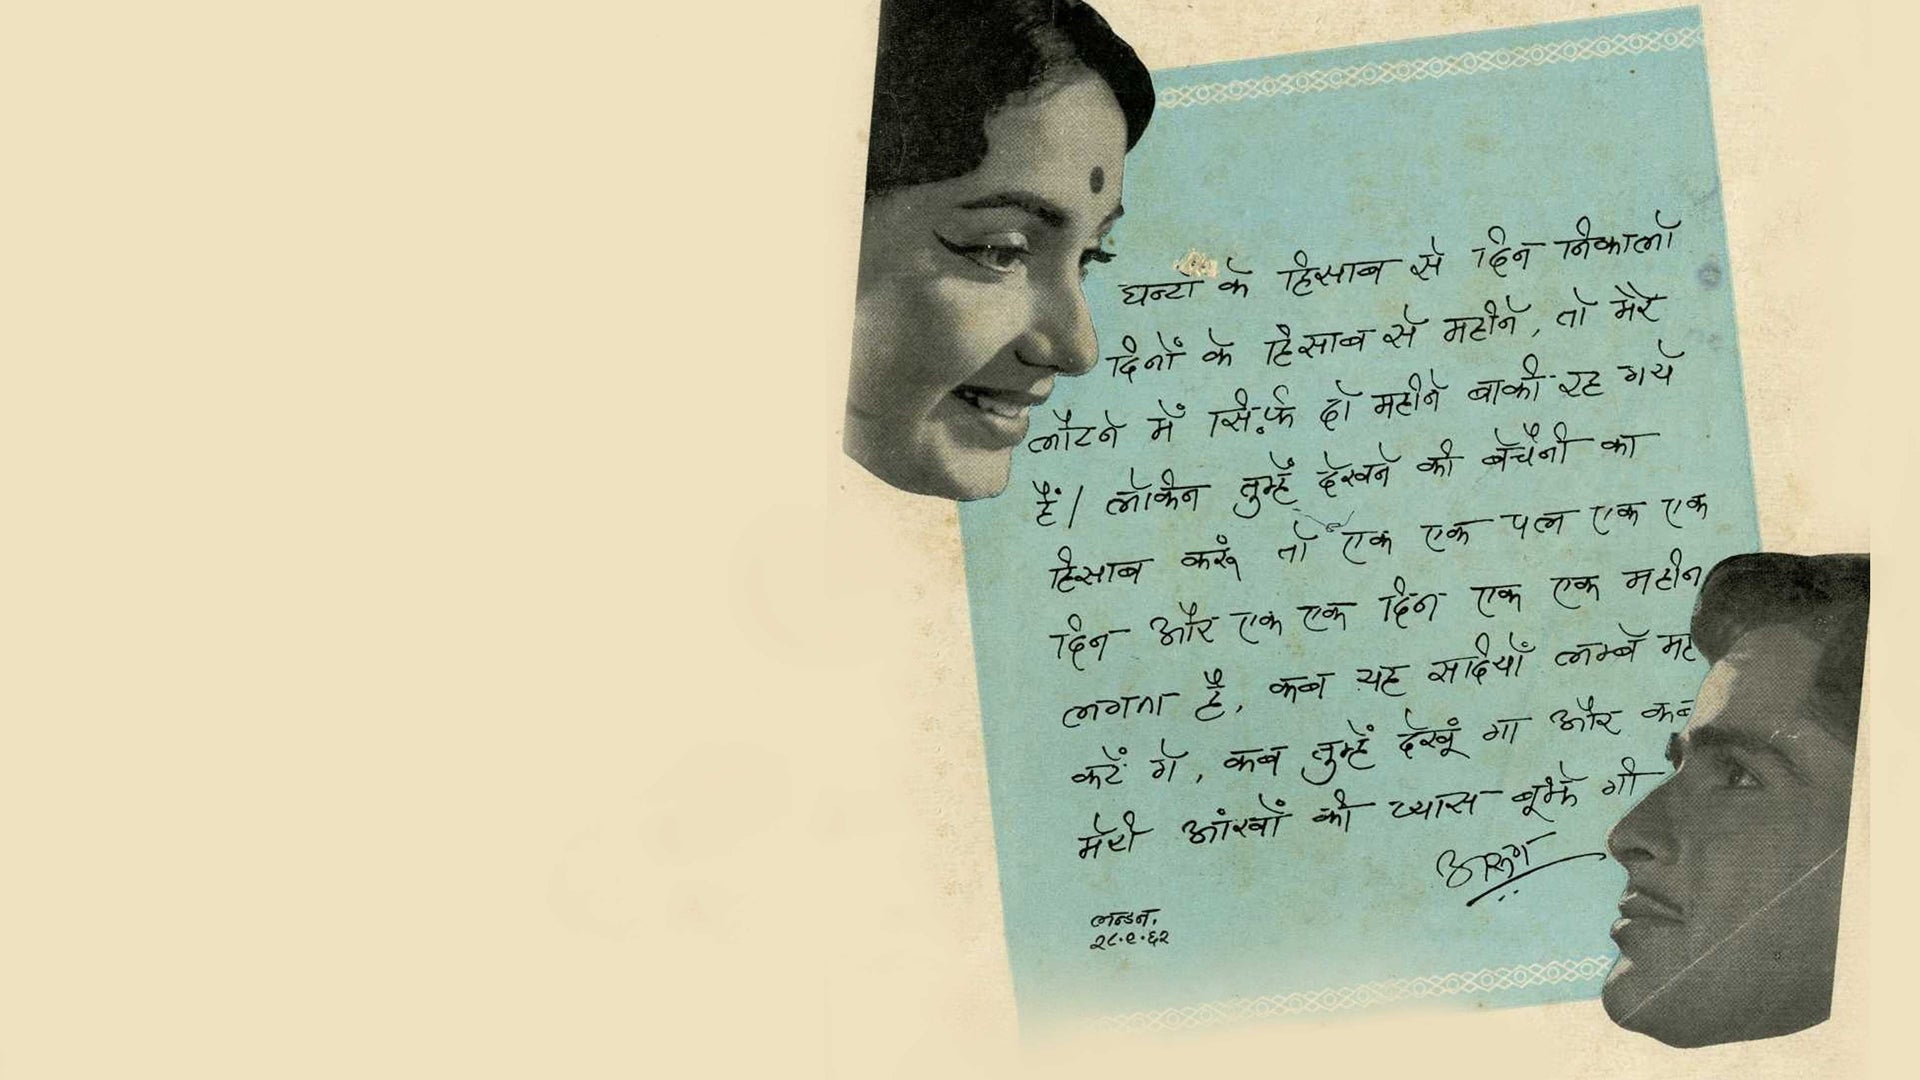 घन्टों के हिसाब से दिन निकालो
दिनों के हिसाब से महीने, तो मेरे
लौटने में सिर्फ़ दो महीने बाकी रह गये
हैं। लेकिन तुम्हें देखने की बेचैनी का
हिसाब करूं तो एक एक पल एक एक
दिन और एक एक दिन एक एक महीन
लगता है, कब यह सदियों लम्बे मह
कटें गे, कब तुम्हें देखूं गा और कब
मेरी आंखों की प्यास बूझे गी
अरूण
लन्डन.
२८.९.६२